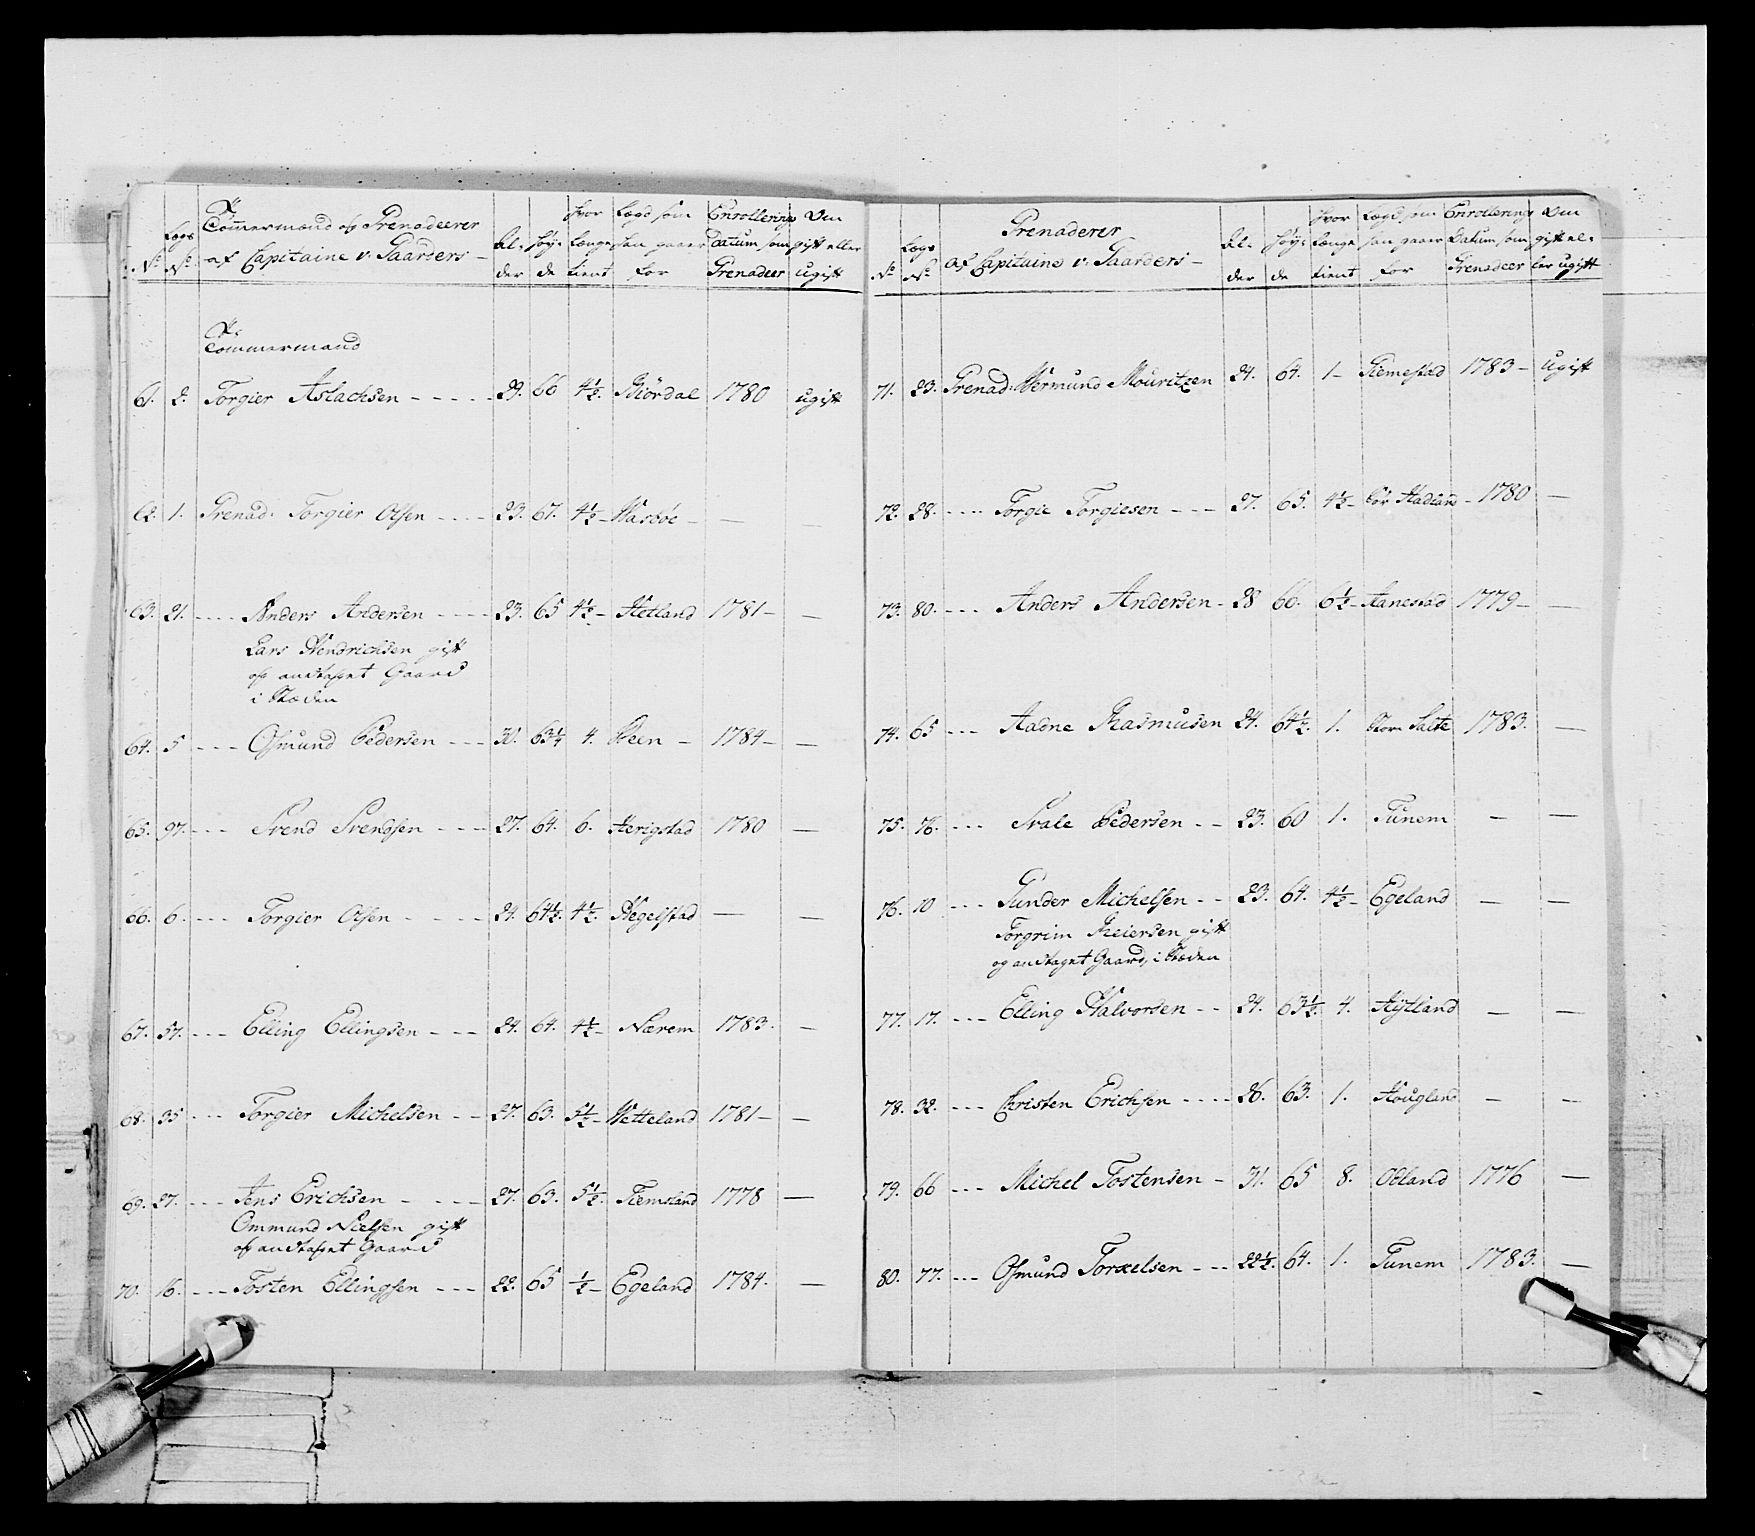 Tømmermænd og Grenadeerer
af Capitaine v: Gaarders
No Lægs No Al: der Høy: de hvor længe tient Lægd som han gaaer for Enrollerings Datum som Grenadeer Om gift eller ugift
Tømmermænd
61. 2. Torgier Aslachsen 29. 66 4½ Biördal 1780 ugift
62. 1. Grenad: Torgier Olsen 23. 67. 4½ Wasböe — —
63. 21. Anders Andersen 23. 65 4½ Hetland 1781 —
Lars Hendrichsen gift
og andtaget Gaard
i Stæden
64. 5 Osmund Pedersen 30. 63¼ 4. Reen 1784 —
65. 97. Svend Svendsen 27. 64. 6. Herigstad 1780 —
66. 6. Torgier Olsen 24. 64½. 4½. Hegelstad — —
67. 57. Elling Ellingsen 24. 64. 4½ Nærem 1783. —
68. 35 Torgier Michelsen 27. 63. 5½ Wetteland 1781 —
69. 27. Jens Erichsen 27. 63. 5½. Tiemsland 1778 —
Ommund Nielsen gift
og andtaget Gaard
70. 16. Tosten Ellingsen 22. 65 ½ Egeland 1784. —
Grenaderer
af Capitaine v: Gaarders
No Lægs No Al: der Høy: de hvor længe tient Lægd som han gaaer for Enrollerings Datum som Grenadeer Om gift el: ler ugift
71. 23. Grenad: Wermund Mouritzen 24. 64. 1 Giemestad 1783 Ugift
72. 28. Torgie Torgiesen 27. 65. 4½ Sör Hadland 1780 —
73. 80. Anders Andersen 28 66. 6½ Aanestad 1779 —
74. 65 Aadne Rasmusen 24. 64½. 1. Store Salte 1783. —
75. 76. Svale Pedersen 23. 60 1. Tunem — —
76. 10 Gunder Michelsen 23. 64. 4½ Egeland — —
Torgrim Reiersen gift
og andtaget Gaard, i Stæden
77. 17. Elling Halvorsen 24. 63½ 4. Høyland — —
78. 32. Christen Erichsen 26. 63. 1. Hougland — —
79. 66 Michel Tostensen 31. 65 8. Obland 1776 —
80. 77. Osmund Torkelsen 22½. 64. 1. Tunem 1783. —